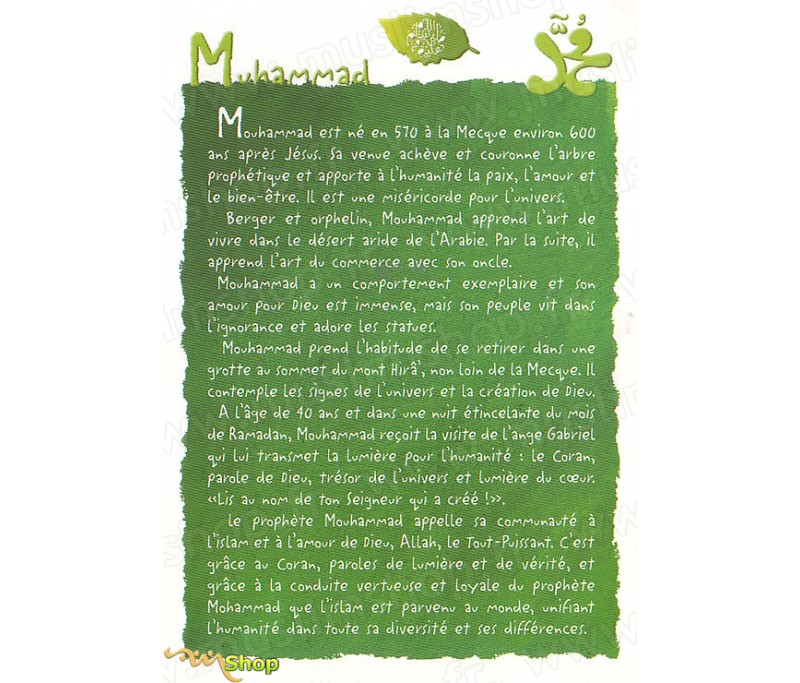 Muhammad
Mouhammad est né en 570 à la Mecque environ 600
ans après Jésus. Sa venue achève et couronne l'arbre
prophétique et apporte à l'humanité la paix, l'amour et
le bien-être. Il est une miséricorde pour l'univers.
Berger et orphelin, Mouhammad apprend l'art de
vivre dans le désert aride de l'Arabie. Par la suite, il
apprend l'art du commerce avec son oncle.
Mouhammad a un comportement exemplaire et son
amour pour Dieu est immense, mais son peuple vit dans
l'ignorance et adore les statues.
Mouhammad prend l'habitude de se retirer dans une
grotte au sommet du mont Hirâ', non loin de la Mecque. Il
contemple les signes de l'univers et la création de Dieu.
A l'âge de 40 ans et dans une nuit étincelante du mois
de Ramadan, Mouhammad reçoit la visite de l'ange Gabriel
qui lui transmet la lumière pour l'humanité : le Coran,
parole de Dieu, trésor de l'univers et lumière du cœur.
«Lis au nom de ton Seigneur qui a créé !».
Le prophète Mouhammad appelle sa communauté à
l'islam et à l'amour de Dieu, Allah, le Tout-Puissant. C'est
grâce au Coran, paroles de lumière et de vérité, et
grâce à la conduite vertueuse et loyale du prophète
Mohammad que l'islam est parvenu au monde, unifiant
l'humanité dans toute sa diversité et ses différences.
Shop